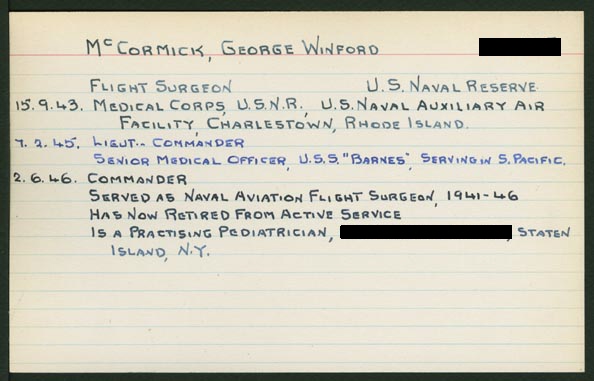 McCormick, George Winford
Flight Surgeon U.S. Naval Reserve
15.9.43. Medical Corps, U.S.N.R., U.S. Naval Auxiliary Air
Facility, Charlestown, Rhode Island.
7.2.45. Lieut.- Commander
Senior Medical Officer, U.S.S. "Barnes", Serving in S. Pacific.
2.6.46. Commander
Served as Naval Aviation Flight Surgeon, 1941-46
Has Now Retired From Active Service
Is a Practising Pediatrician, , Staten
Island, N.Y.